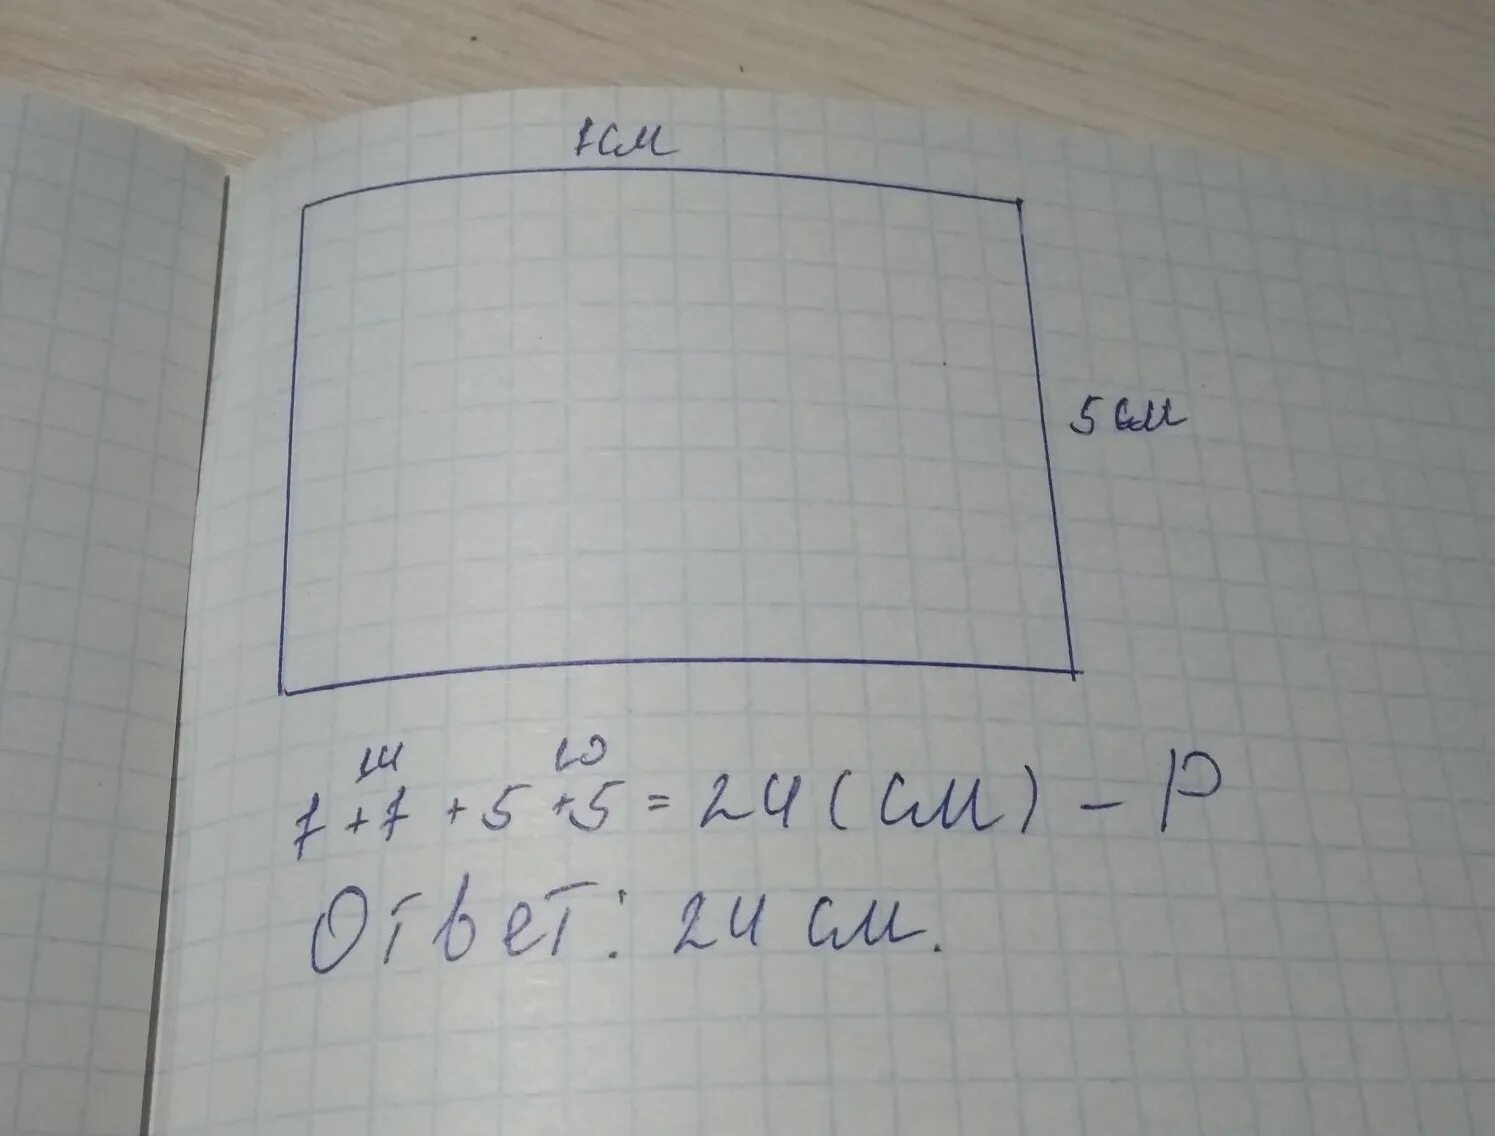 7см
5см
14 10
7+7+5+5=24(см)-P
Ответ: 24 см.